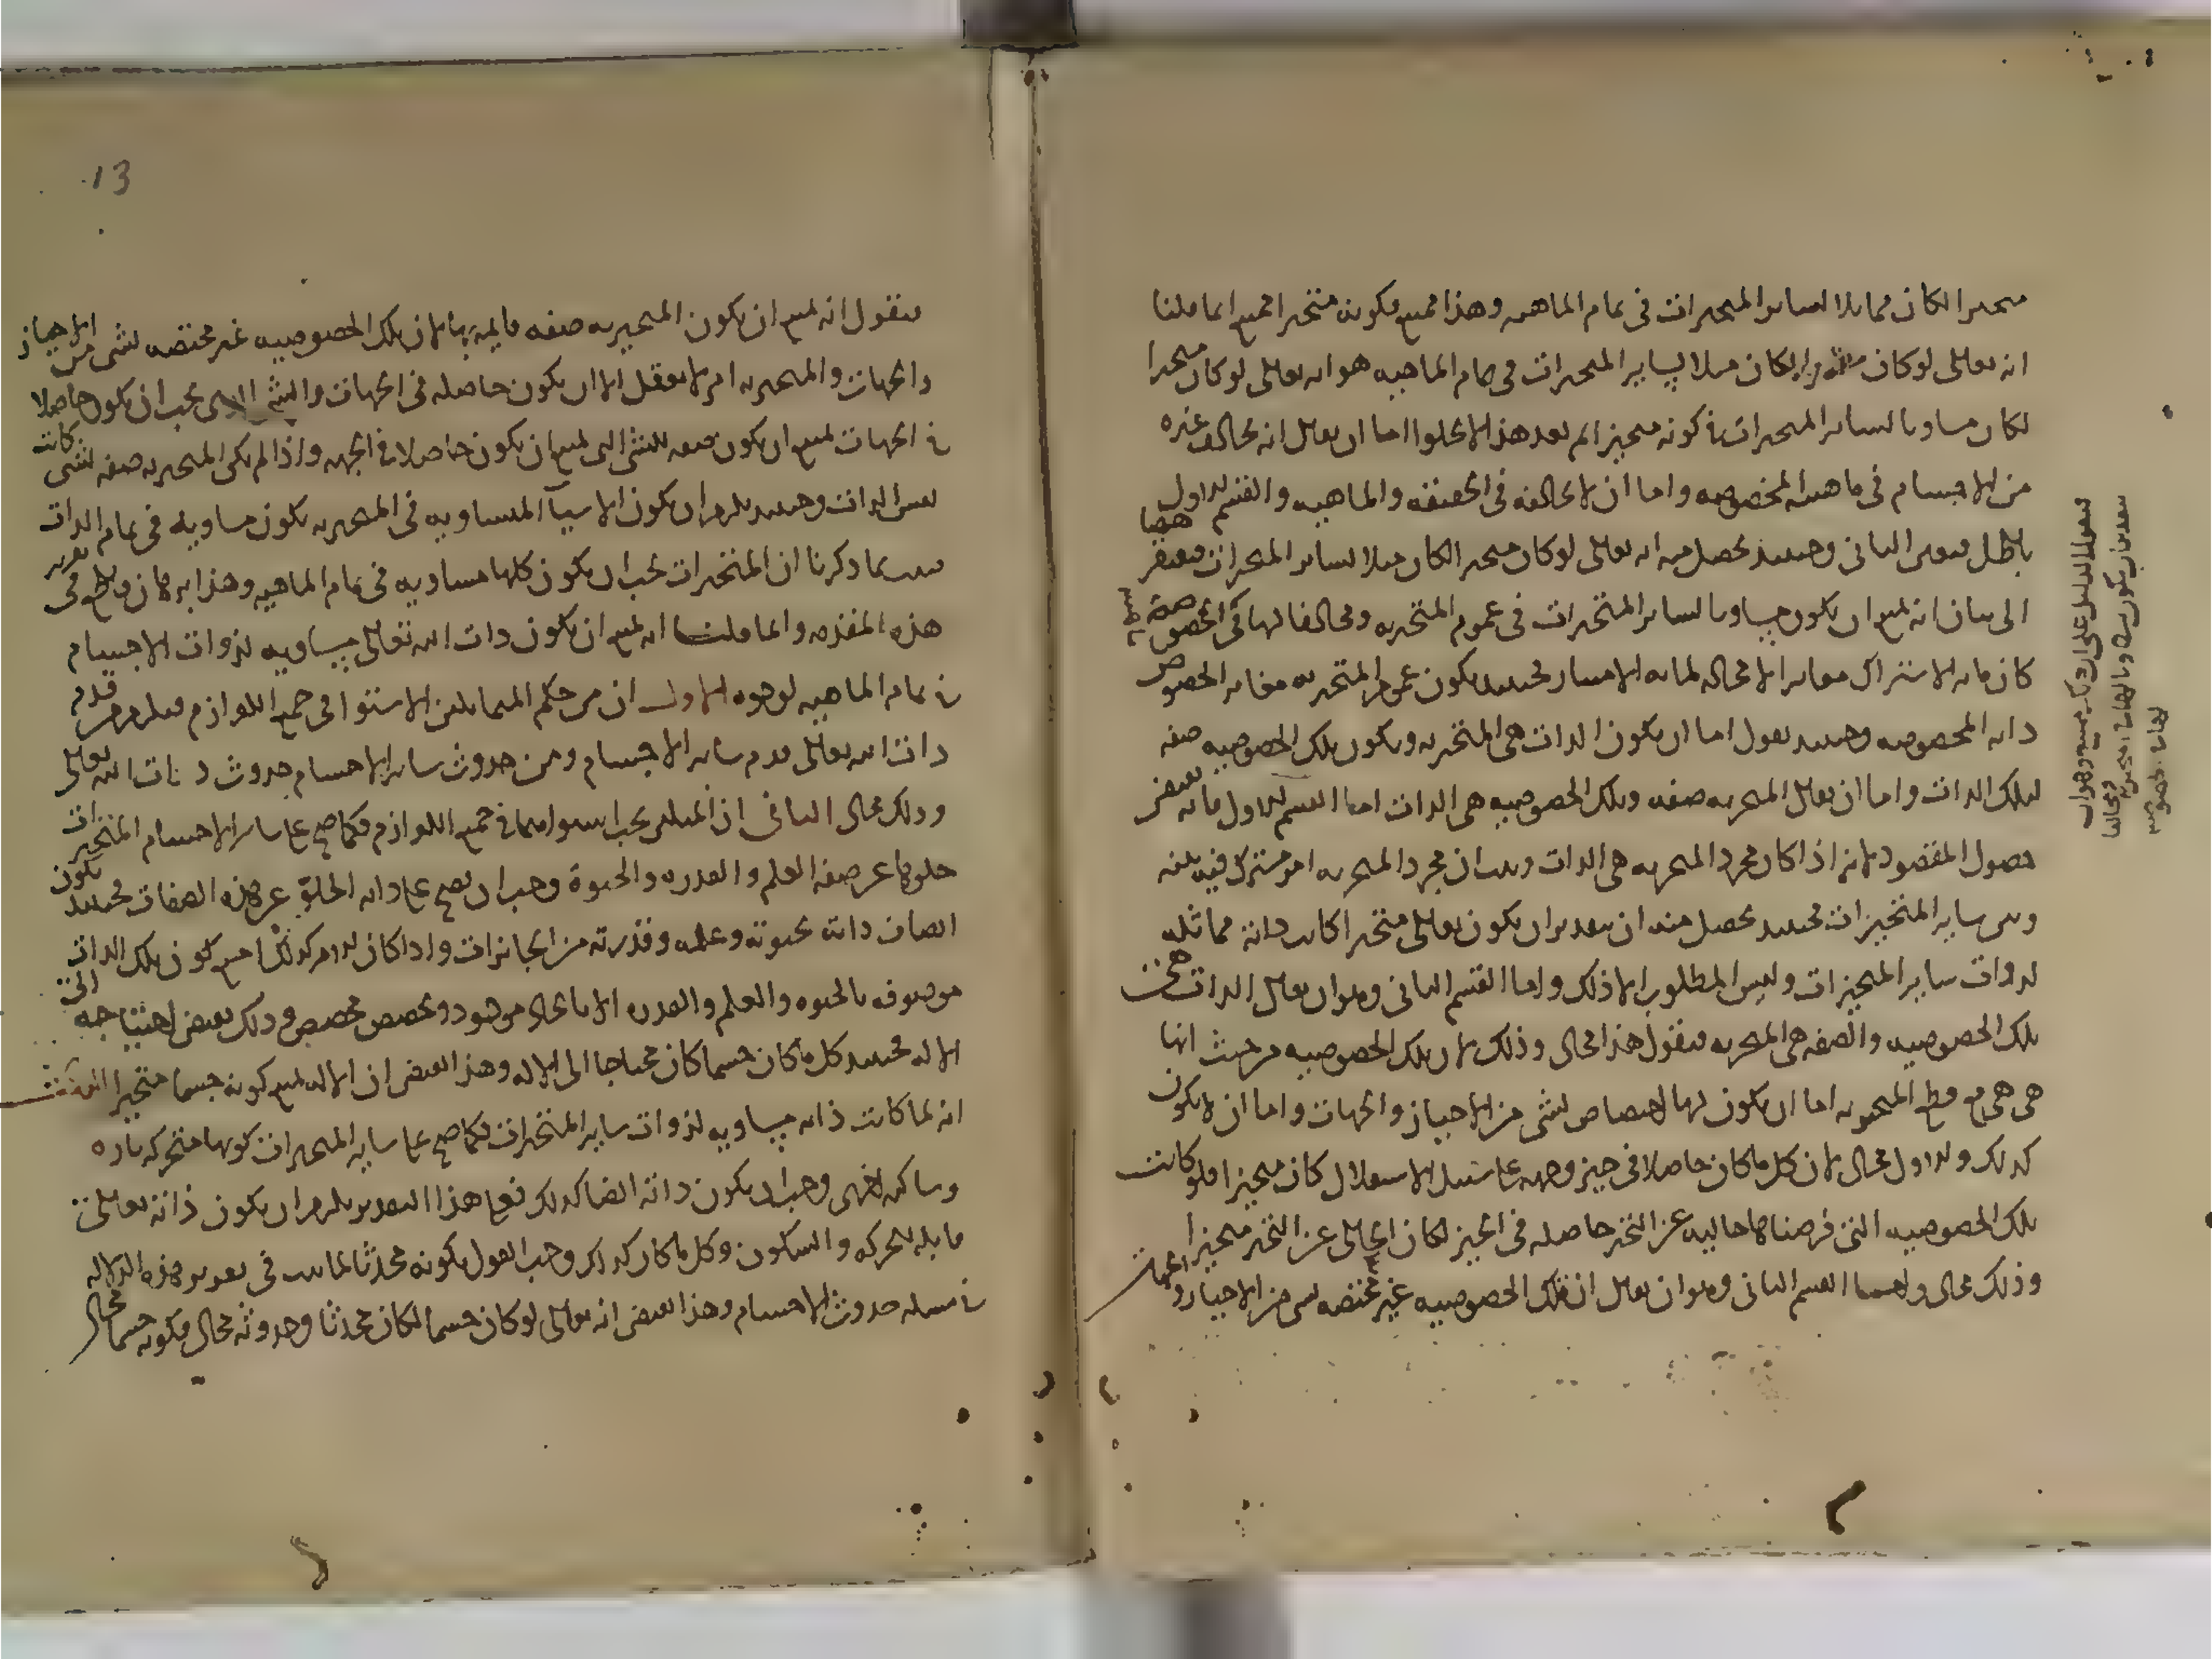 متحيزا لكان مماثلا لساير المتحيزات في تمام الماهيه وهذا ممتنع فكونه متحيزا ممتنع انما قلنا
انه تعالى لو كان متحيزا لكان مثلا لساير المتحيزات في تمام الماهيه هو انه تعالى لو كان متحيزا
لكان مساويا لساير المتحيزات في كونه متحيزا ثم بعد هذا لا يخلوا اما ان يقال انه يخالف غيره
من الاجسام في ماهيته المخصوصه واما ان لا يخالفه في الحقيقه والماهيه والقسم الاول
باطل فتعين الثاني وحينئذ يحصل منه انه تعالى لو كان متحيزا لكان مثلا لساير المتحيزات فيفتقر ههنا
الى بيان انه يمتنع ان يكون مساويا لساير المتحيزات في عموم المتحيزيه ومخالفا لها في الخصوصية
كان ما به الاشتراك مغايرا لا محاله لما به الامتياز فحينئذ يكون عموم المتحيزيه مغايرا لخصوص
ذاته المخصوصه وحينئذ نقول اما ان يكون الذات هي المتحيزيه ويكون تلك الخصوصيه صفه
لتلك الذات واما ان يقال المتحيزيه صفه وتلك الخصوصيه هي الذات اما القسم الاول فانه يقتضي
حصول المقصود لانه اذا كان مجرد المتحيزيه هي الذات وثبت ان مجرد المتحيزيه امر مشترك فيه بينه
وبين ساير المتحيزات فحينئذ يحصل منه ان بتقدير ان يكون تعالى متحيزا كانت ذاته مماثله
لذوات ساير المتحيزات وليس المطلوب الا ذلك واما القسم الثاني وهو ان يقال الذات هي
تلك الخصوصيه والصفه هي المتحيزيه فنقول هذا محال وذلك لان تلك الخصوصيه من حيث انها
هي هي مع قطع المتحيزيه اما ان يكون لها اختصاص بشي من الاحياز والجهات واما ان لا يكون
كذلك والاول محال لان كل ما كان حاصلا في حيز وجهه على سبيل الاستقلال كان متحيزا فلو كانت
تلك الخصوصيه التي فرضناها خاليه عن التحيز حاصله في الحيز لكان الخالي عن التحيز متحيزا
وذلك محال واما القسم الثاني وهو ان يقال ان تلك الخصوصيه غير مختصه بشي من الاحياز والجهات
فنقول انه يمتنع ان يكون المتحيزيه صفه قايمة بها لان تلك الخصوصيه غير مختصه بشي من الاحياز
والجهات والمتحيزيه امر لا يعقل الا ان يكون حاصله في الجهات والشي الذي يجب ان يكون حاصلا
في الجهات يمتنع ان يكون صفه للشي الذي يمتنع ان يكون حاصلا في الجهه واذا لم يكن المتحيزيه صفه لشي كانت
نفس الذات وحينئذ يلزم ان يكون الاشيآ المتساويه في المتحيزيه يكون مساويه في تمام الذات
فثبت بما ذكرنا ان المتحيزات يجب ان يكون كلها متساويه في تمام الماهيه وهذا برهان قاطع في تقرير
هذه المقدمه وانما قلنا انه يمتنع ان يكون ذات الله تعالى مساويه لذوات الاجسام
في تمام الماهيه لوجوه الاول ان من حكم المتماثلين الاستوا في جميع اللوازم فيلزم من قدم
ذات الله تعالى قدم ساير الاجسام ومن حدوث ساير الاجسام حدوث ذات الله تعالى
وذلك محال الثاني ان المثلين يجب استواهما في جميع اللوازم فكما صح على ساير الاجسام المتحيزات
خلوها عن صفه العلم والقدره والحيوة وجب ان يصح على ذاته الخلو عن هذه الصفات فحينئذ يكون
اتصاف ذاته بحيوته وعلمه وقدرته من الجايزات واذا كان الامر كذلك امتنع كون تلك الذات
موصوفه بالحيوه والعلم والقدره الا بايجاد موجود وتخصيص مخصص وذلك يقتضي احتياجه الى
الاله فحينئذ كل ما كان جسما كان محتاجا الى الاله وهذا يقتضي ان الاله يمتنع كونه جسما متحيزا الثالث
انه لما كانت ذاته مساويه لذوات ساير المتحيزات فكما صح على ساير المتحيزات كونها متحركه تاره
وساكنه اخرى وجب ان يكون ذاته ايضا كذلك فعلى هذا التقدير يلزم ان يكون ذاته تعالى
قابله للحركه والسكون وكل ما كان كذلك وجب القول بكونه محدثا لما ثبت في تقرير هذه الدلاله
في مسله حدوث الاجسام وهذا يقتضي انه تعالى لو كان جسما لكان محدثا وحدوثه محال فكونه جسما محال
13